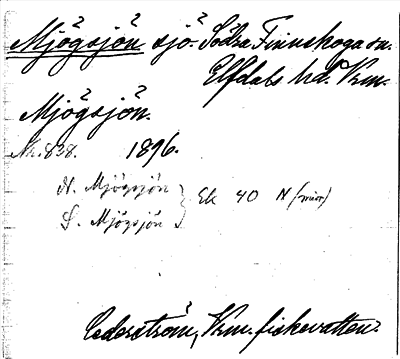 Mjögsjön sjö. Södra Finnskoga sn.
Elfdals hd. Vrm.
Mjögsjön.
Nr. 838. 1896.
N. Mjögsjön
S. Mjögsjön } Ek 40 N
Cederström, Vrm. fiskevatten.